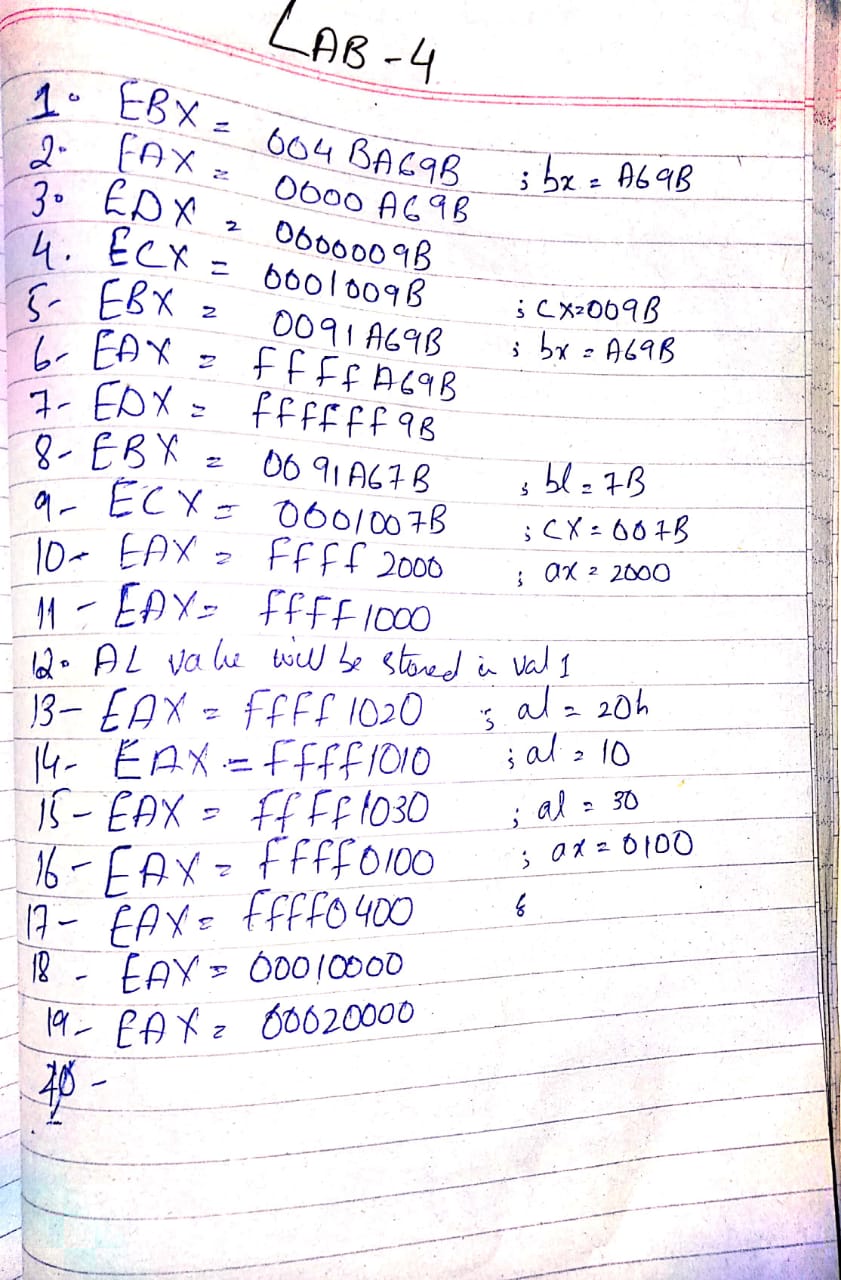 LAB-4
1. EBX = 004BA69B ; bx = A69B
2. EAX = 0000A69B
3. EDX = 0000009B
4. ECX = 0001009B ; CX=009B
5- EBX = 0091A69B ; bx = A69B
6- EAX = ffffA69B
7- EDX = ffffff9B
8- EBX = 0091A67B ; bl = 7B
9- ECX = 0001007B ; CX = 007B
10- EAX = ffff2000 ; ax = 2000
11- EAX= ffff1000
12. AL value will be stored in val1
13- EAX = ffff1020 ; al = 20h
14- EAX = ffff1010 ; al = 10
15- EAX = ffff1030 ; al = 30
16- EAX = ffff0100 ; ax = 0100
17- EAX = ffff0400 ;
18- EAX = 00010000
19- EAX = 00020000
20-